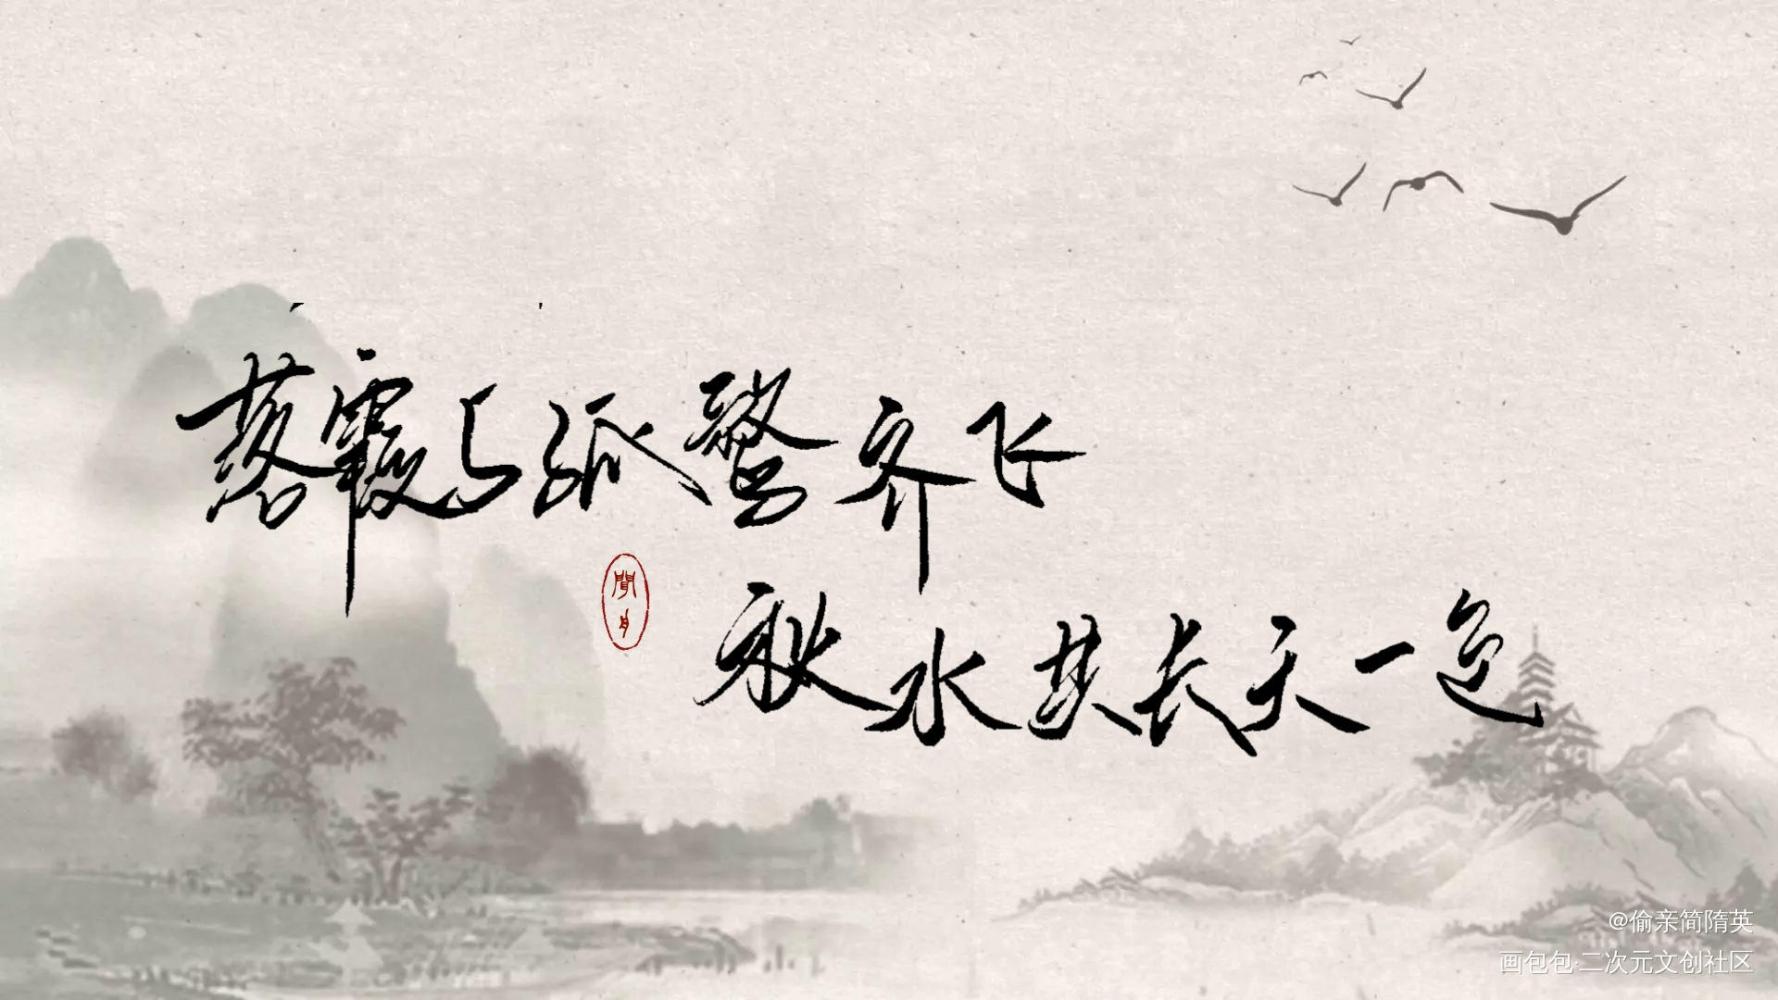 落霞与孤鹜齐飞
秋水共长天一色
@偷亲简隋英
画包包·二次元文创社区